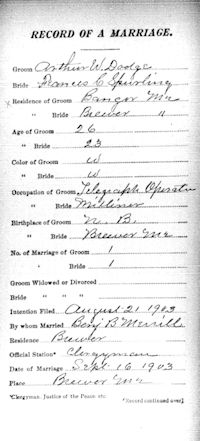 RECORD OF A MARRIAGE.
Groom Arthur W. Dodge
Bride Frances C Spurling
x Residence of Groom Bangor Me
" Bride Brewer "
Age of Groom 26
" Bride 23
Color of Groom W
" Bride W
Occupation of Groom Telegraph Operator
" Bride Milliner
Birthplace of Groom N. B.
" Bride Brewer Me
No. of Marriage of Groom 1
" Bride 1
Groom Widowed or Divorced
Bride " " "
Intention Filed August 21 1903
By whom Married Benj B. Merrill
Residence Brewer
Official Station* Clergyman
Date of Marriage Sept 16 1903
Place Brewer Me
*Clergyman, Justice of the Peace, etc. [Record continued over]